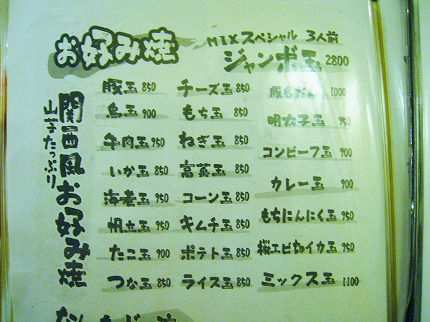 お好み焼
MIXスペシャル 3人前
ジャンボ玉 2800
関西風お好み焼
山芋たっぷり
豚玉 850
鳥玉 900
牛肉玉 950
いか玉 850
海老玉 950
帆立玉 950
たこ玉 900
つな玉 850
チーズ玉 850
もち玉 850
ねぎ玉 850
高菜玉 850
コーン玉 850
キムチ玉 850
ポテト玉 850
ライス玉 850
1000
明太子玉 950
コンビーフ玉 900
カレー玉 900
もちにんにく玉 950
桜エビ切イカ玉 950
ミックス玉 1100